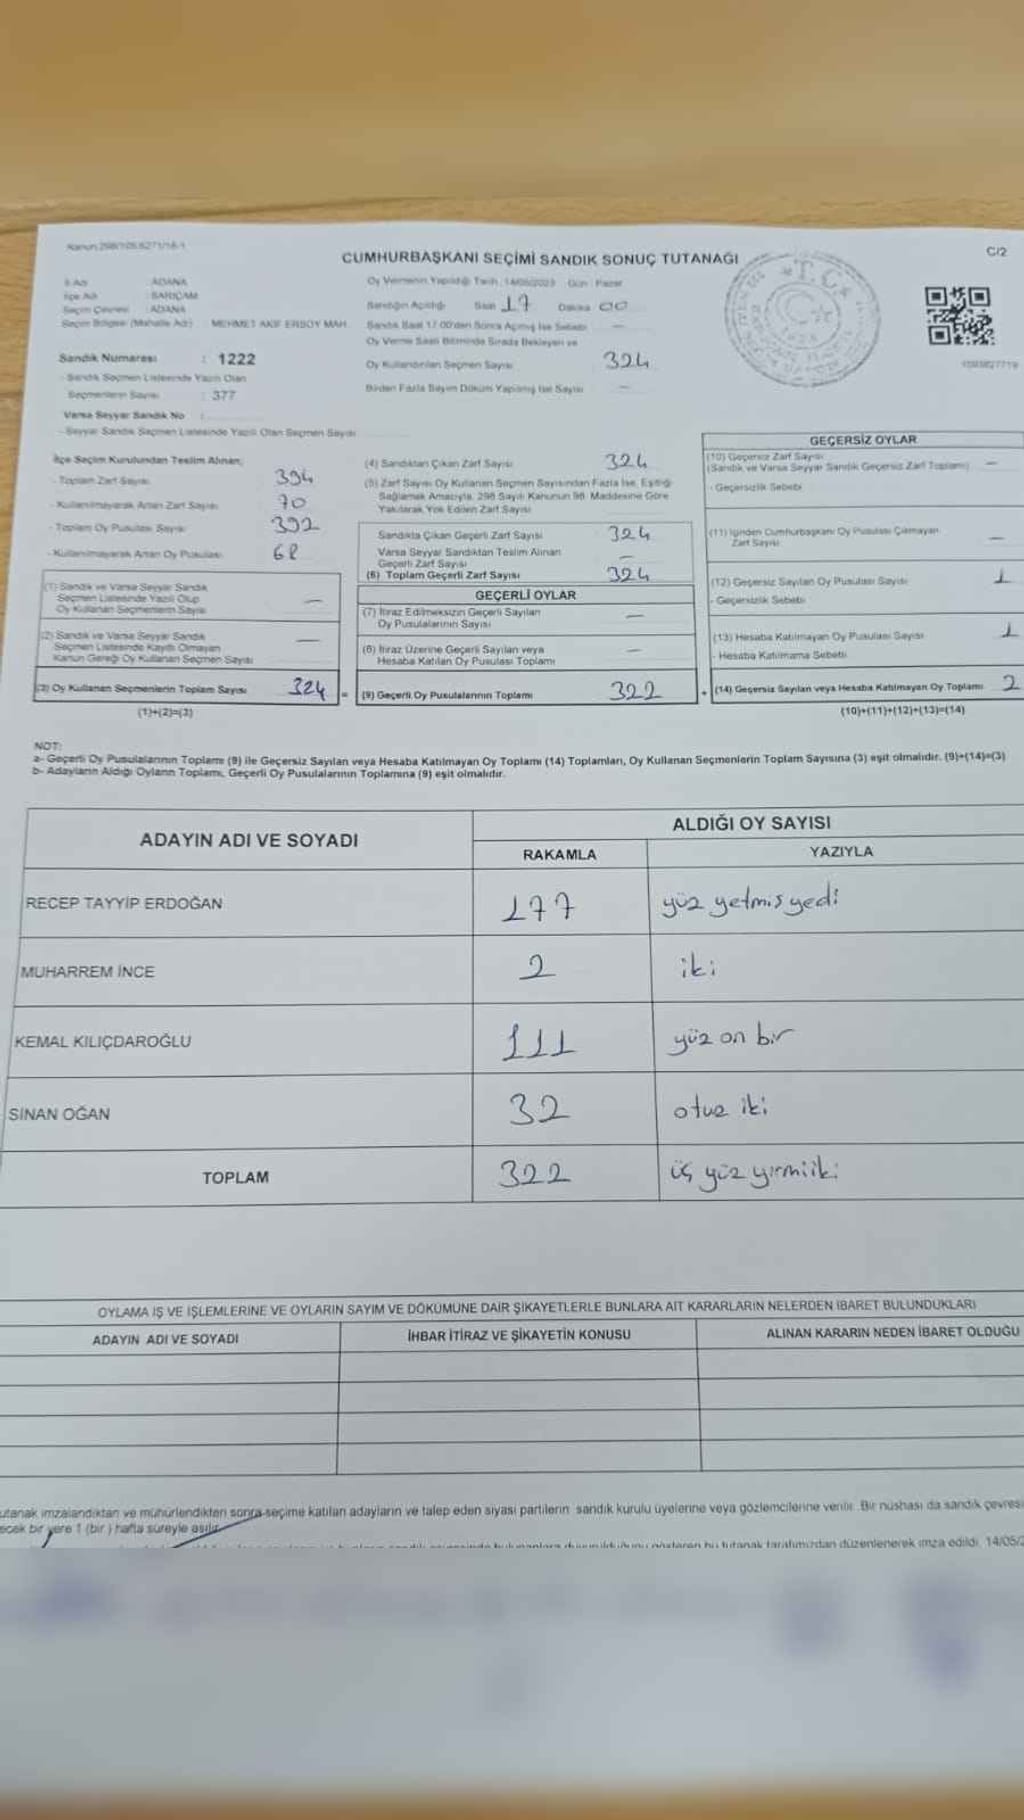 Kanun:298/105;6271/16-1
C/2
CUMHURBAŞKANI SEÇİMİ SANDIK SONUÇ TUTANAĞI
İl Adı : ADANA
İlçe Adı : SARIÇAM
Seçim Çevresi : ADANA
Seçim Bölgesi (Mahalle Adı) : MEHMET AKİF ERSOY MAH.
Sandık Numarası : 1222
- Sandık Seçmen Listesinde Yazılı Olan
Seçmenlerin Sayısı : 377
Varsa Seyyar Sandık No :
- Seyyar Sandık Seçmen Listesinde Yazılı Olan Seçmen Sayısı
Oy Vermenin Yapıldığı Tarih: 14/05/2023 Gün: Pazar
Sandığın Açıldığı Saat 17 Dakika 00
Sandık Saat 17.00'den Sonra Açılmış İse Sebebi —
Oy Verme Saati Bitiminde Sırada Bekleyen ve
Oy Kullandırılan Seçmen Sayısı 324
Birden Fazla Sayım Döküm Yapılmış İse Sayısı —
İlçe Seçim Kurulundan Teslim Alınan;
- Toplam Zarf Sayısı 394
- Kullanılmayarak Artan Zarf Sayısı 70
- Toplam Oy Pusulası Sayısı 392
- Kullanılmayarak Artan Oy Pusulası 68
(1) Sandık ve Varsa Seyyar Sandık
Seçmen Listesinde Yazılı Olup
Oy Kullanan Seçmenlerin Sayısı —
(2) Sandık ve Varsa Seyyar Sandık
Seçmen Listesinde Kayıtlı Olmayan
Kanun Gereği Oy Kullanan Seçmen Sayısı —
(3) Oy Kullanan Seçmenlerin Toplam Sayısı 324 =
(1)+(2)=(3)
(4) Sandıktan Çıkan Zarf Sayısı 324
(5) Zarf Sayısı Oy Kullanan Seçmen Sayısından Fazla İse, Eşitliği
Sağlamak Amacıyla, 298 Sayılı Kanunun 98. Maddesine Göre
Yakılarak Yok Edilen Zarf Sayısı
Sandıkta Çıkan Geçerli Zarf Sayısı 324
Varsa Seyyar Sandıktan Teslim Alınan
Geçerli Zarf Sayısı —
(6) Toplam Geçerli Zarf Sayısı 324
GEÇERLİ OYLAR
(7) İtiraz Edilmeksizin Geçerli Sayılan
Oy Pusulalarının Sayısı —
(8) İtiraz Üzerine Geçerli Sayılan veya
Hesaba Katılan Oy Pusulası Toplamı —
(9) Geçerli Oy Pusulalarının Toplamı 322 +
GEÇERSİZ OYLAR
(10) Geçersiz Zarf Sayısı
(Sandık ve Varsa Seyyar Sandık Geçersiz Zarf Toplamı) —
- Geçersizlik Sebebi
(11) İçinden Cumhurbaşkanı Oy Pusulası Çıkmayan
Zarf Sayısı —
(12) Geçersiz Sayılan Oy Pusulası Sayısı 1
- Geçersizlik Sebebi
(13) Hesaba Katılmayan Oy Pusulası Sayısı 1
- Hesaba Katılmama Sebebi
(14) Geçersiz Sayılan veya Hesaba Katılmayan Oy Toplamı 2
(10)+(11)+(12)+(13)=(14)
NOT:
a- Geçerli Oy Pusulalarının Toplamı (9) ile Geçersiz Sayılan veya Hesaba Katılmayan Oy Toplamı (14) Toplamları, Oy Kullanan Seçmenlerin Toplam Sayısına (3) eşit olmalıdır. (9)+(14)=(3)
b- Adayların Aldığı Oyların Toplamı, Geçerli Oy Pusulalarının Toplamına (9) eşit olmalıdır.
ADAYIN ADI VE SOYADI
ALDIĞI OY SAYISI
RAKAMLA YAZIYLA
RECEP TAYYİP ERDOĞAN 177 yüz yetmiş yedi
MUHARREM İNCE 2 iki
KEMAL KILIÇDAROĞLU 111 yüz on bir
SİNAN OĞAN 32 otuz iki
TOPLAM 322 üç yüz yirmi iki
OYLAMA İŞ VE İŞLEMLERİNE VE OYLARIN SAYIM VE DÖKÜMÜNE DAİR ŞİKAYETLERLE BUNLARA AİT KARARLARIN NELERDEN İBARET BULUNDUKLARI
ADAYIN ADI VE SOYADI İHBAR İTİRAZ VE ŞİKAYETİN KONUSU ALINAN KARARIN NEDEN İBARET OLDUĞU
utanak imzalandıktan ve mühürlendikten sonra seçime katılan adayların ve talep eden siyasi partilerin sandık kurulu üyelerine veya gözlemcilerine verilir. Bir nüshası da sandık çevresi
ecek bir yere 1 (bir ) hafta süreyle asılır.
bu tutanak tarafımızdan düzenlenerek imza edildi. 14/05/2